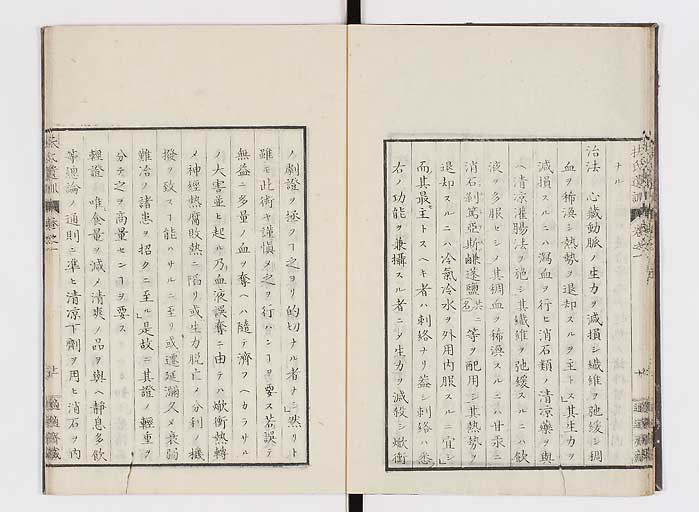 ナル
治法 心臓動脈ノ生力ヲ減損シ繊維ヲ弛緩シ稠
血ヲ稀湊シ熱勢ヲ退却スルヲ主トス其生力ヲ
減損スルニハ瀉血ヲ行ヒ消石類ノ清凉藥ヲ與
ヘ清凉灌腸法ヲ施シ其繊維ヲ弛緩スルニハ飲
液ヲ多服セシメ其稠血ヲ稀湊スルニハ甘汞ニ
消石 等ヲ配用シ其熱勢ヲ
退却スルニハ冷氣冷水ヲ外用内服スルニ宜シ
而其最主トスヘキ者ハ刺絡ナリ蓋シ刺絡ハ悉
右ノ功能ヲ兼攝スル者ニメ生力ヲ減殺シ焮衝
ノ劇證ヲ拯フヿ之ヨリ的切ナル者ナシ然リト
雖モ此術ヤ謹愼メ之ヲ行ハンヿヲ要ス若誤テ
無益ニ多量ノ血ヲ奪ヘハ隨テ濟フヘカラサル
ノ大害並ヒ起ル乃血液誤奪ニ由テハ焮衝熱轉
メ神經熱腐敗熱ニ陷リ或生力脱亡メ分利ノ機
撥ヲ致スヿ能ハサルニ至リ或遷延瀰久メ衰弱
難治ノ諸患ヲ招クニ至ル是故ニ其證ノ輕重ヲ
分テ之ヲ商量センヿヲ要ス
輕證ハ唯食量ヲ減メ清爽ノ品ヲ與ヘ靜息多飲
等總論ノ通則ニ準ヒ清凉下劑ヲ用ヒ消石ヲ内